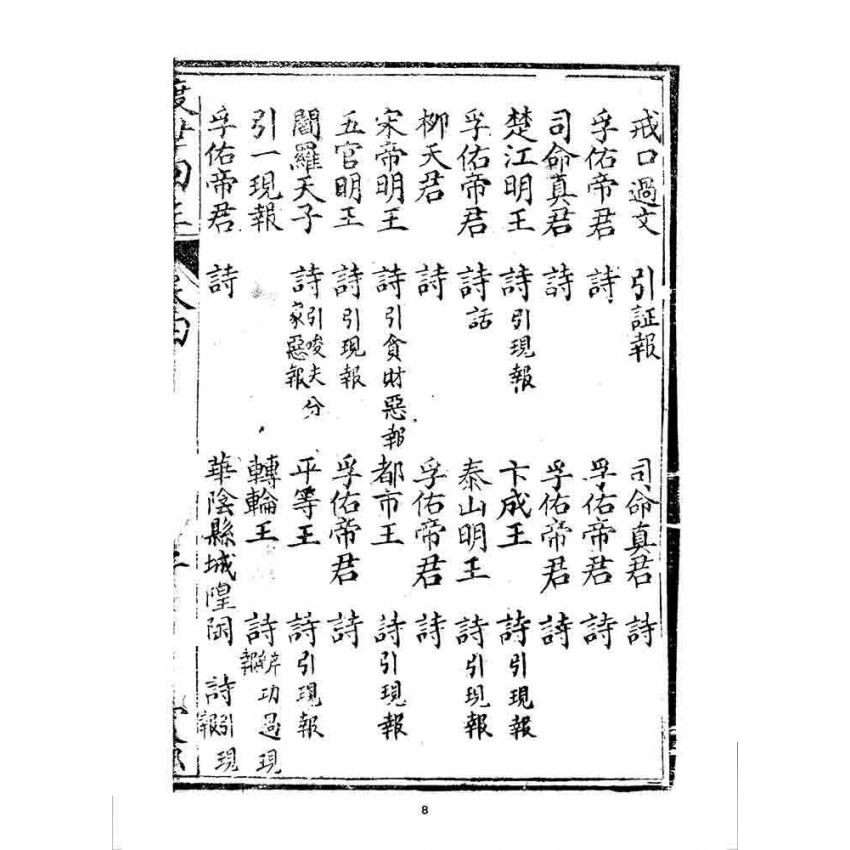 戒口過文 引証報 司命真君 詩
孚佑帝君 詩 孚佑帝君 詩
司命真君 詩 孚佑帝君 詩
楚江明王 詩 引現報 卞成王 詩 引現報
孚佑帝君 詩 話 泰山明王 詩 引現報
柳天君 詩 孚佑帝君 詩
宋帝明王 詩 引貪財惡報 都市王 詩 引現報
五官明王 詩 引現報 孚佑帝君 詩
閻羅天子 詩 引唆夫分家惡報 平等王 詩 引現報
引一現報 轉輪王 詩 功過現報
孚佑帝君 詩 華陰縣城隍 詩 引現
8